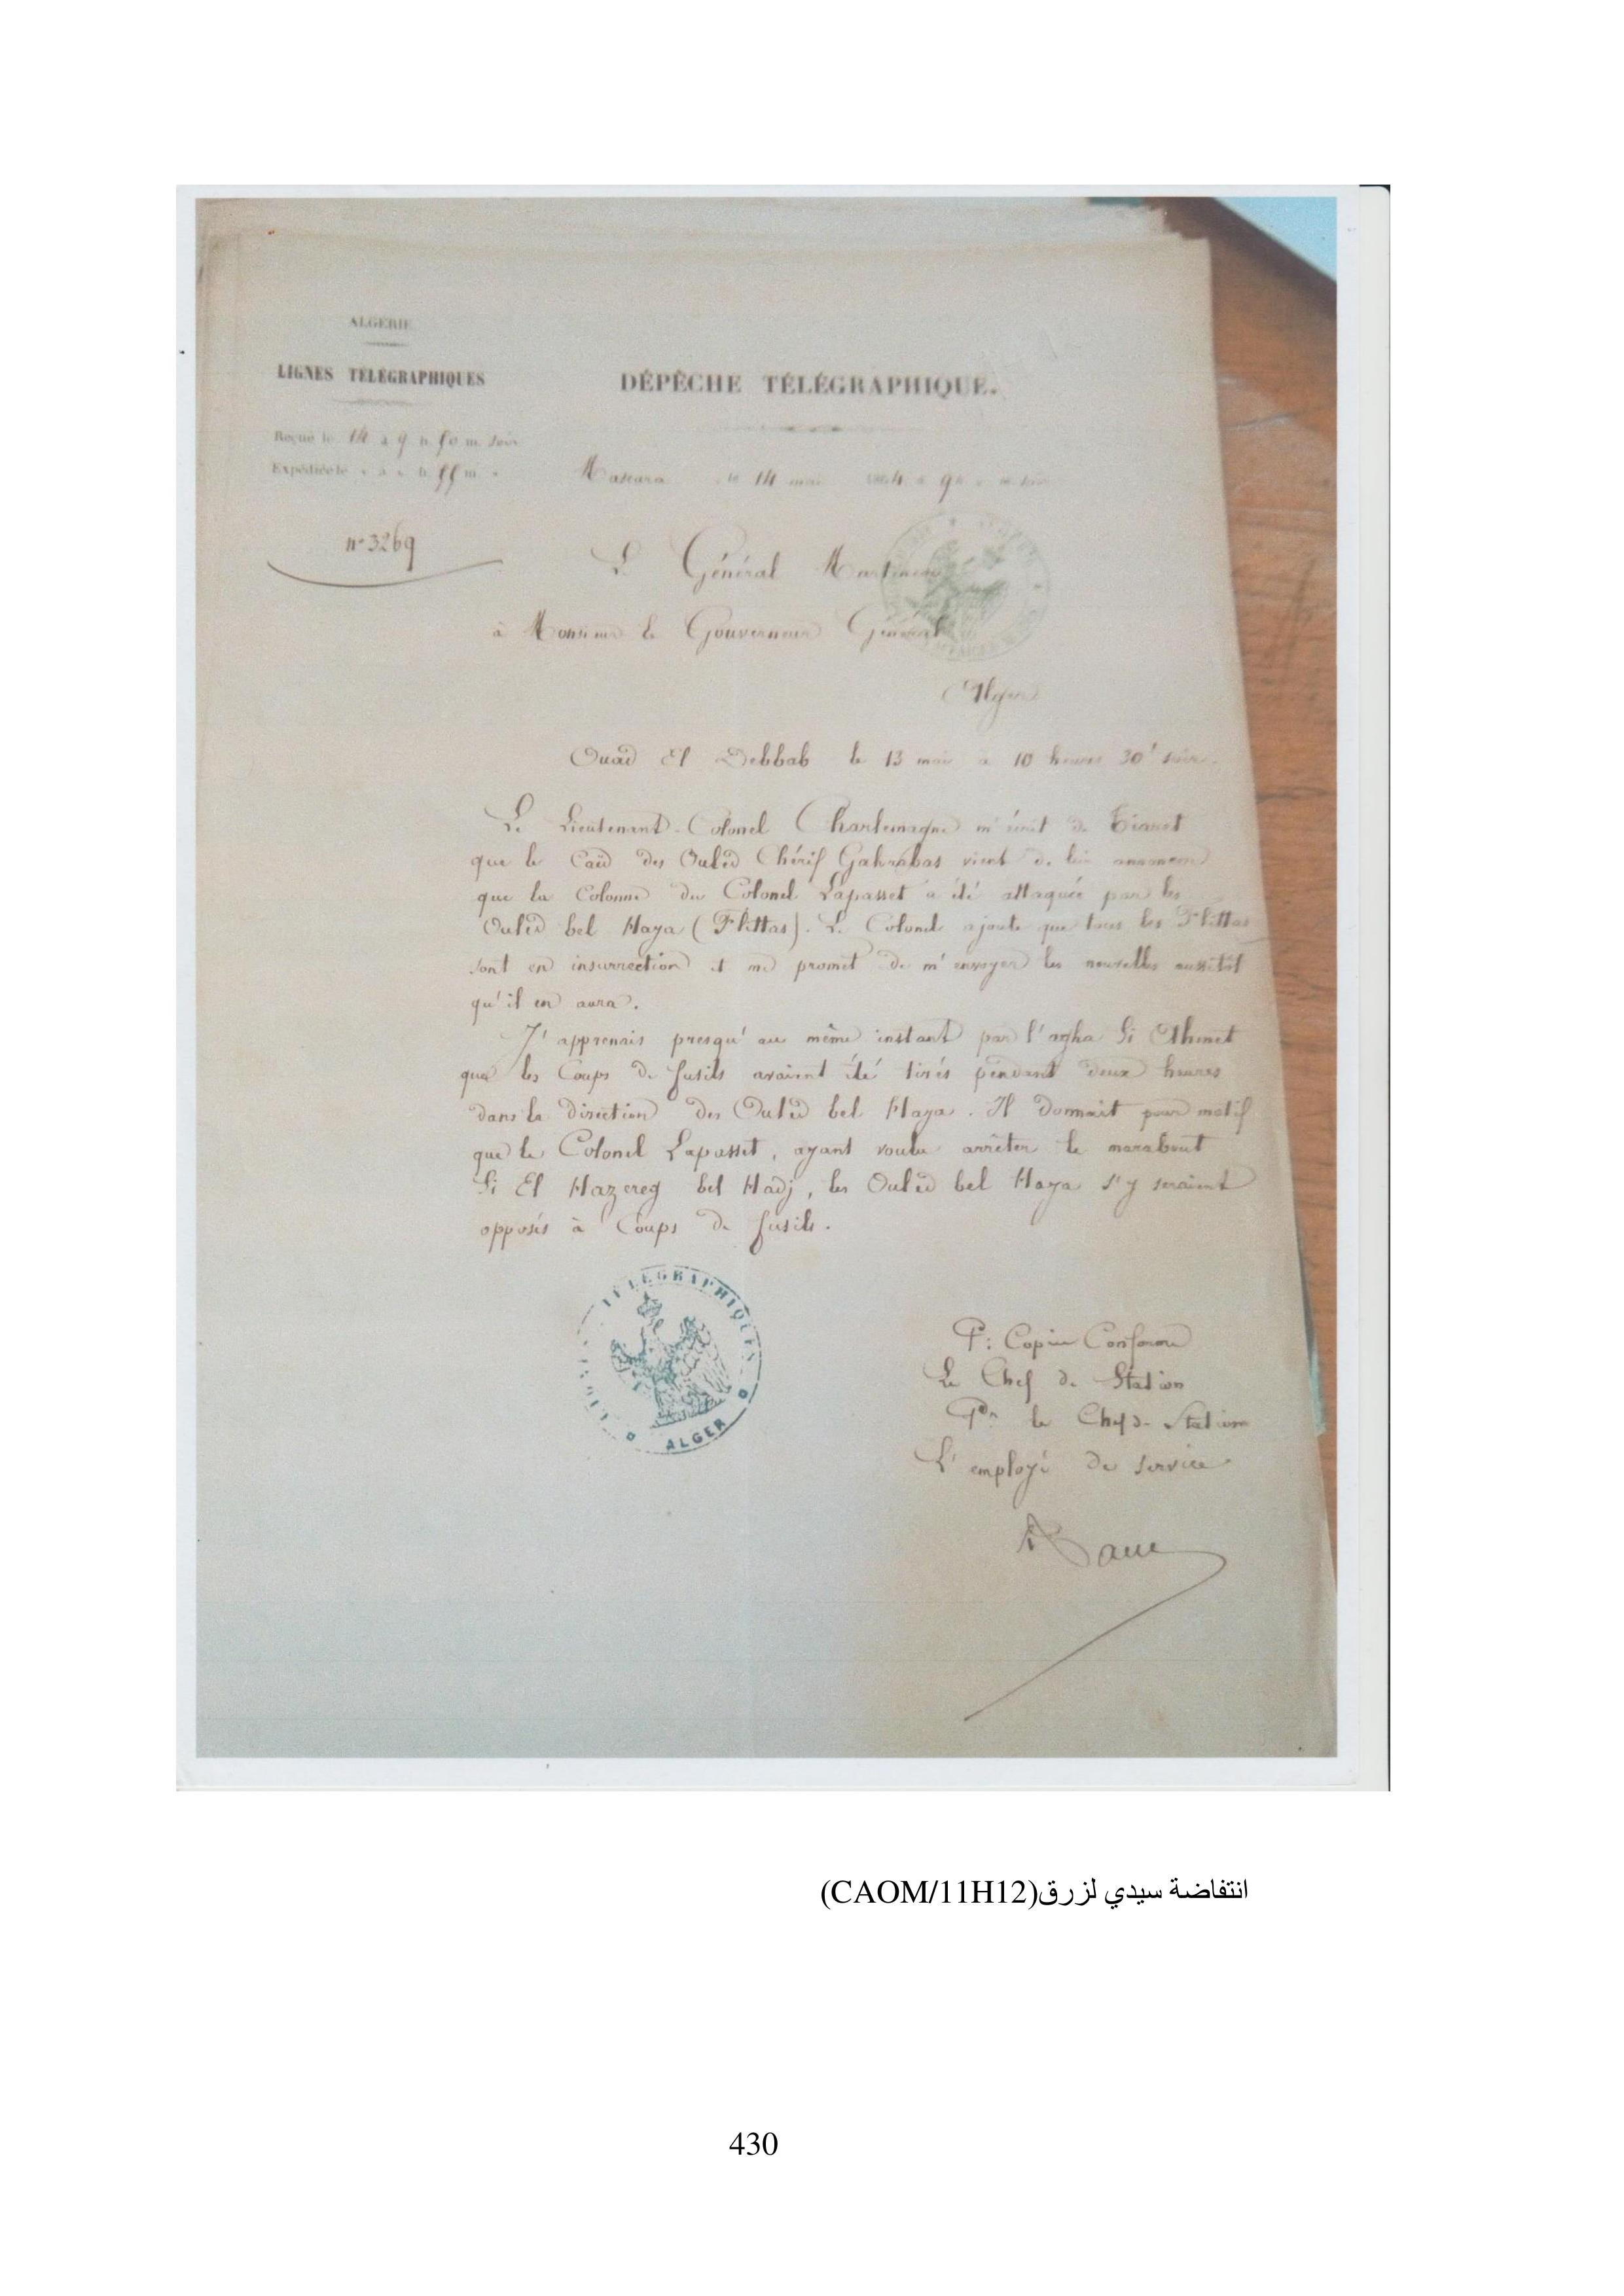 ALGÉRIE
LIGNES TÉLÉGRAPHIQUES
DÉPÊCHE TÉLÉGRAPHIQUE.
Reçue le 14 à 9 h. 50 m. soir
Expédiée le " à " h. 55 m "
Mascara le 14 mai 1864 à 9 h
n° 3269
Le Général
à Monsieur le Gouverneur Général
Alger
Ouad El Debbab le 13 mai à 10 heures 30' soir.
Le Lieutenant-Colonel Charlemagne m'écrit de Tiaret
que le Caïd des Ouled Chérif Gahrabas vient de lui annoncer
que la Colonne du Colonel Lapasset a été attaquée par les
Ouled bel Haya (Flittas). Le Colonel ajoute que tous les Flittas
sont en insurrection et me promet de m'envoyer les nouvelles aussitôt
qu'il en aura.
J'apprenais presqu'au même instant par l'agha Si Ahmet
que les Coups de fusils avaient été tirés pendant deux heures
dans la direction des Ouled bel Haya. Il donnait pour motif
que le Colonel Lapasset, ayant voulu arrêter le marabout
Si El Hazereg bel Hadj, les Ouled bel Haya s'y seraient
opposés à Coups de fusils.
TÉLÉGRAPHIQUES
ALGER
P. Copie Conforme
Le Chef de Station
Pr le Chef de Station
L'employé de service
انتفاضة سيدي لزرق(CAOM/11H12)
430